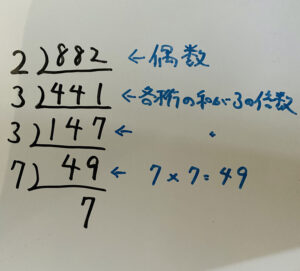 2)882 ←偶数
3)441 ←各桁の和が3の倍数
3)147 ← 〃
7)49 ← 7×7=49
7